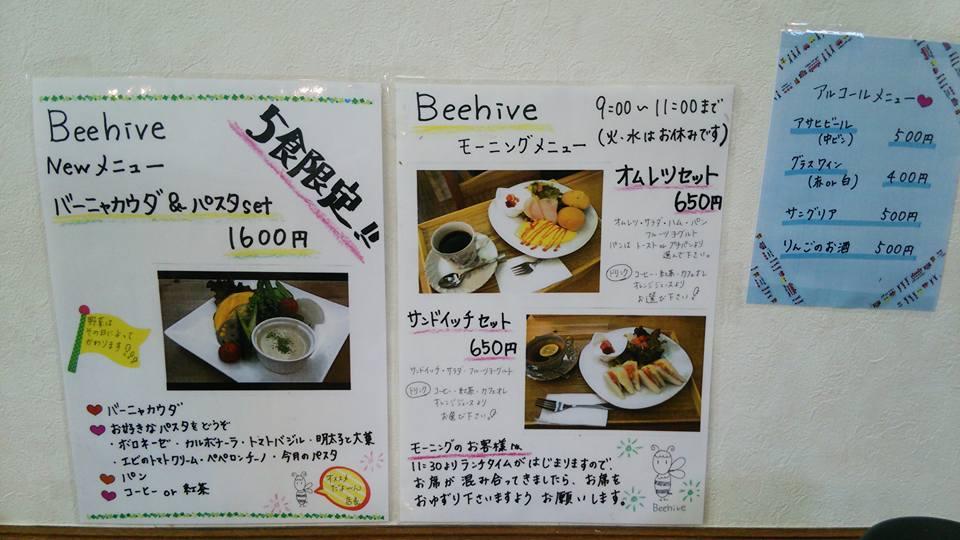 Beehive
Newメニュー
5食限定!!
バーニャカウダ & パスタset
1600円
野菜は
その日によって
かわります
バーニャカウダ
お好きなパスタをどうぞ
・ボロネーゼ・カルボナーラ・トマトバジル・明太子と大葉
・エビのトマトクリーム・ペペロンチーノ・今月のパスタ
パン
コーヒー or 紅茶
オススメ
だよーん
店長
Beehive
9:00〜11:00まで
モーニングメニュー
(火・水はお休みです)
オムレツセット
650円
オムレツ・サラダ・ハム・パン
フルーツヨーグルト
パンは トースト or プチパンより
選んで下さい。
ドリンク
コーヒー・紅茶・カフェオレ
オレンジジュースより
お選び下さい
サンドイッチセット
650円
サンドイッチ・サラダ・フルーツヨーグルト
ドリンク
コーヒー・紅茶・カフェオレ
オレンジジュースより
お選び下さい
モーニングのお客様へ
11:30よりランチタイムがはじまりますので、
お席が混み合ってきましたら、お席を
おゆずり下さいますよう お願いします。
Beehive
アルコールメニュー
アサヒビール
(中ビン)
500円
グラスワイン
(赤 or 白)
400円
サングリア
500円
りんごのお酒
500円